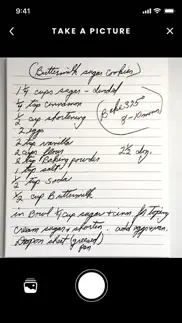 9:41
TAKE A PICTURE
(Buttermilk sugar cookies)
1 1/4 cups sugar - divided
1/4 tsp cinnamon
1/2 cup shortening
2 eggs
Bake 325°
8-10 mins
2 tsp vanilla
cups flour
2 1/2 doz.
tsp Baking powder
1 tsp salt
1/2 tsp soda
1/2 cup Buttermilk
in Bowl 1/4 cup sugar + cinn. for toping
cream sugar + shorten. add eggs + van.
Drop on sheet (greased)
pan